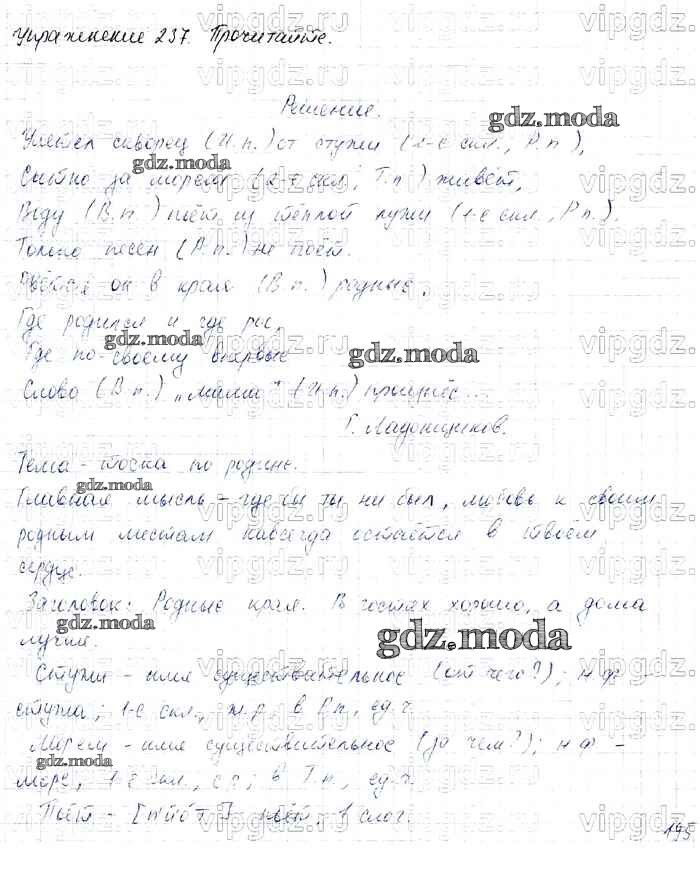 Упражнение 237. Прочитайте.
Решение.
Улетел скворец (И.п.) от стужи (1-е скл., Р.п),
Сытно за морем (2-е скл, Т.п) живёт,
Воду (В.п.) пьёт из тёплой лужи (1-е скл., Р.п.),
Только песен (Р.п.) не поёт.
он в края (В.п.) родные,
Где родился и где рос,
Где по-своему впервые
Слово (В.п.) „мама" (И.п.) произнёс...
Г. Ладонщиков.
Тема - тоска по родине.
Главная мысль - где бы ты ни был, любовь к своим
родным местам навсегда остаётся в твоём
сердце.
Заголовок: Родные края. В гостях хорошо, а дома
лучше.
Стужи - имя существительное (от чего?); н.ф -
стужа; 1-е скл., ж.р. в Р.п, ед.ч.
Морем - имя существительное (за чем?); н.ф -
море, скл., с.р; в Т.п, ед.ч.
Поёт - поёт, 1 слог.
195
gdz.moda
gdz.moda
gdz.moda
gdz.moda
gdz.moda
gdz.moda
gdz.moda
gdz.moda
vipgdz.ru